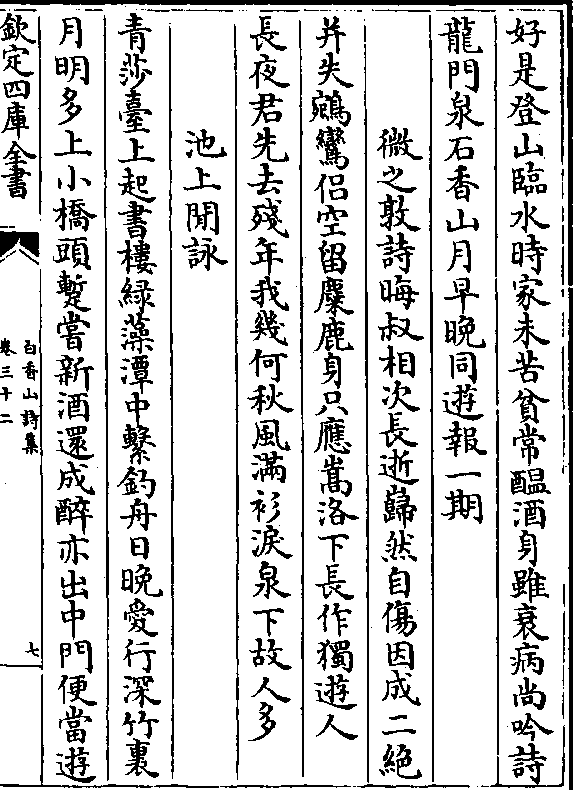 好是登山臨水時家未苦貧常醖酒身雖衰病尚吟詩
龍門泉石香山月早晚同遊報一期
微之敦詩晦叔相次長逝巋然自傷因成二絶
并失鵷鸞侣空留麋鹿身只應嵩洛下長作獨遊人
長夜君先去殘年我幾何秋風滿衫淚泉下故人多
池上閒詠
青莎臺上起書樓緑藻潭中繫釣舟日晚愛行深竹裏
月明多上小橋頭暫嘗新酒還成醉亦出中門便當遊
欽定四庫全書
白香山詩集
卷三十二
七